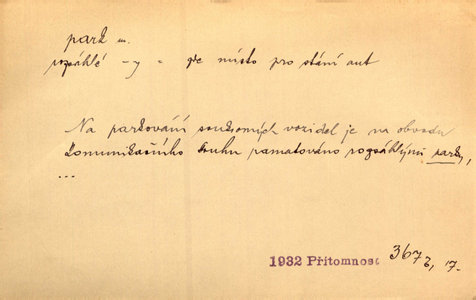 park m.
rozsáhlé -y = místo pro stání aut
Na parkování soukromých vozidel je na obvodu
komunikačního kruhu pamatováno rozsáhlými parky,
...
1932 Přítomnost 367